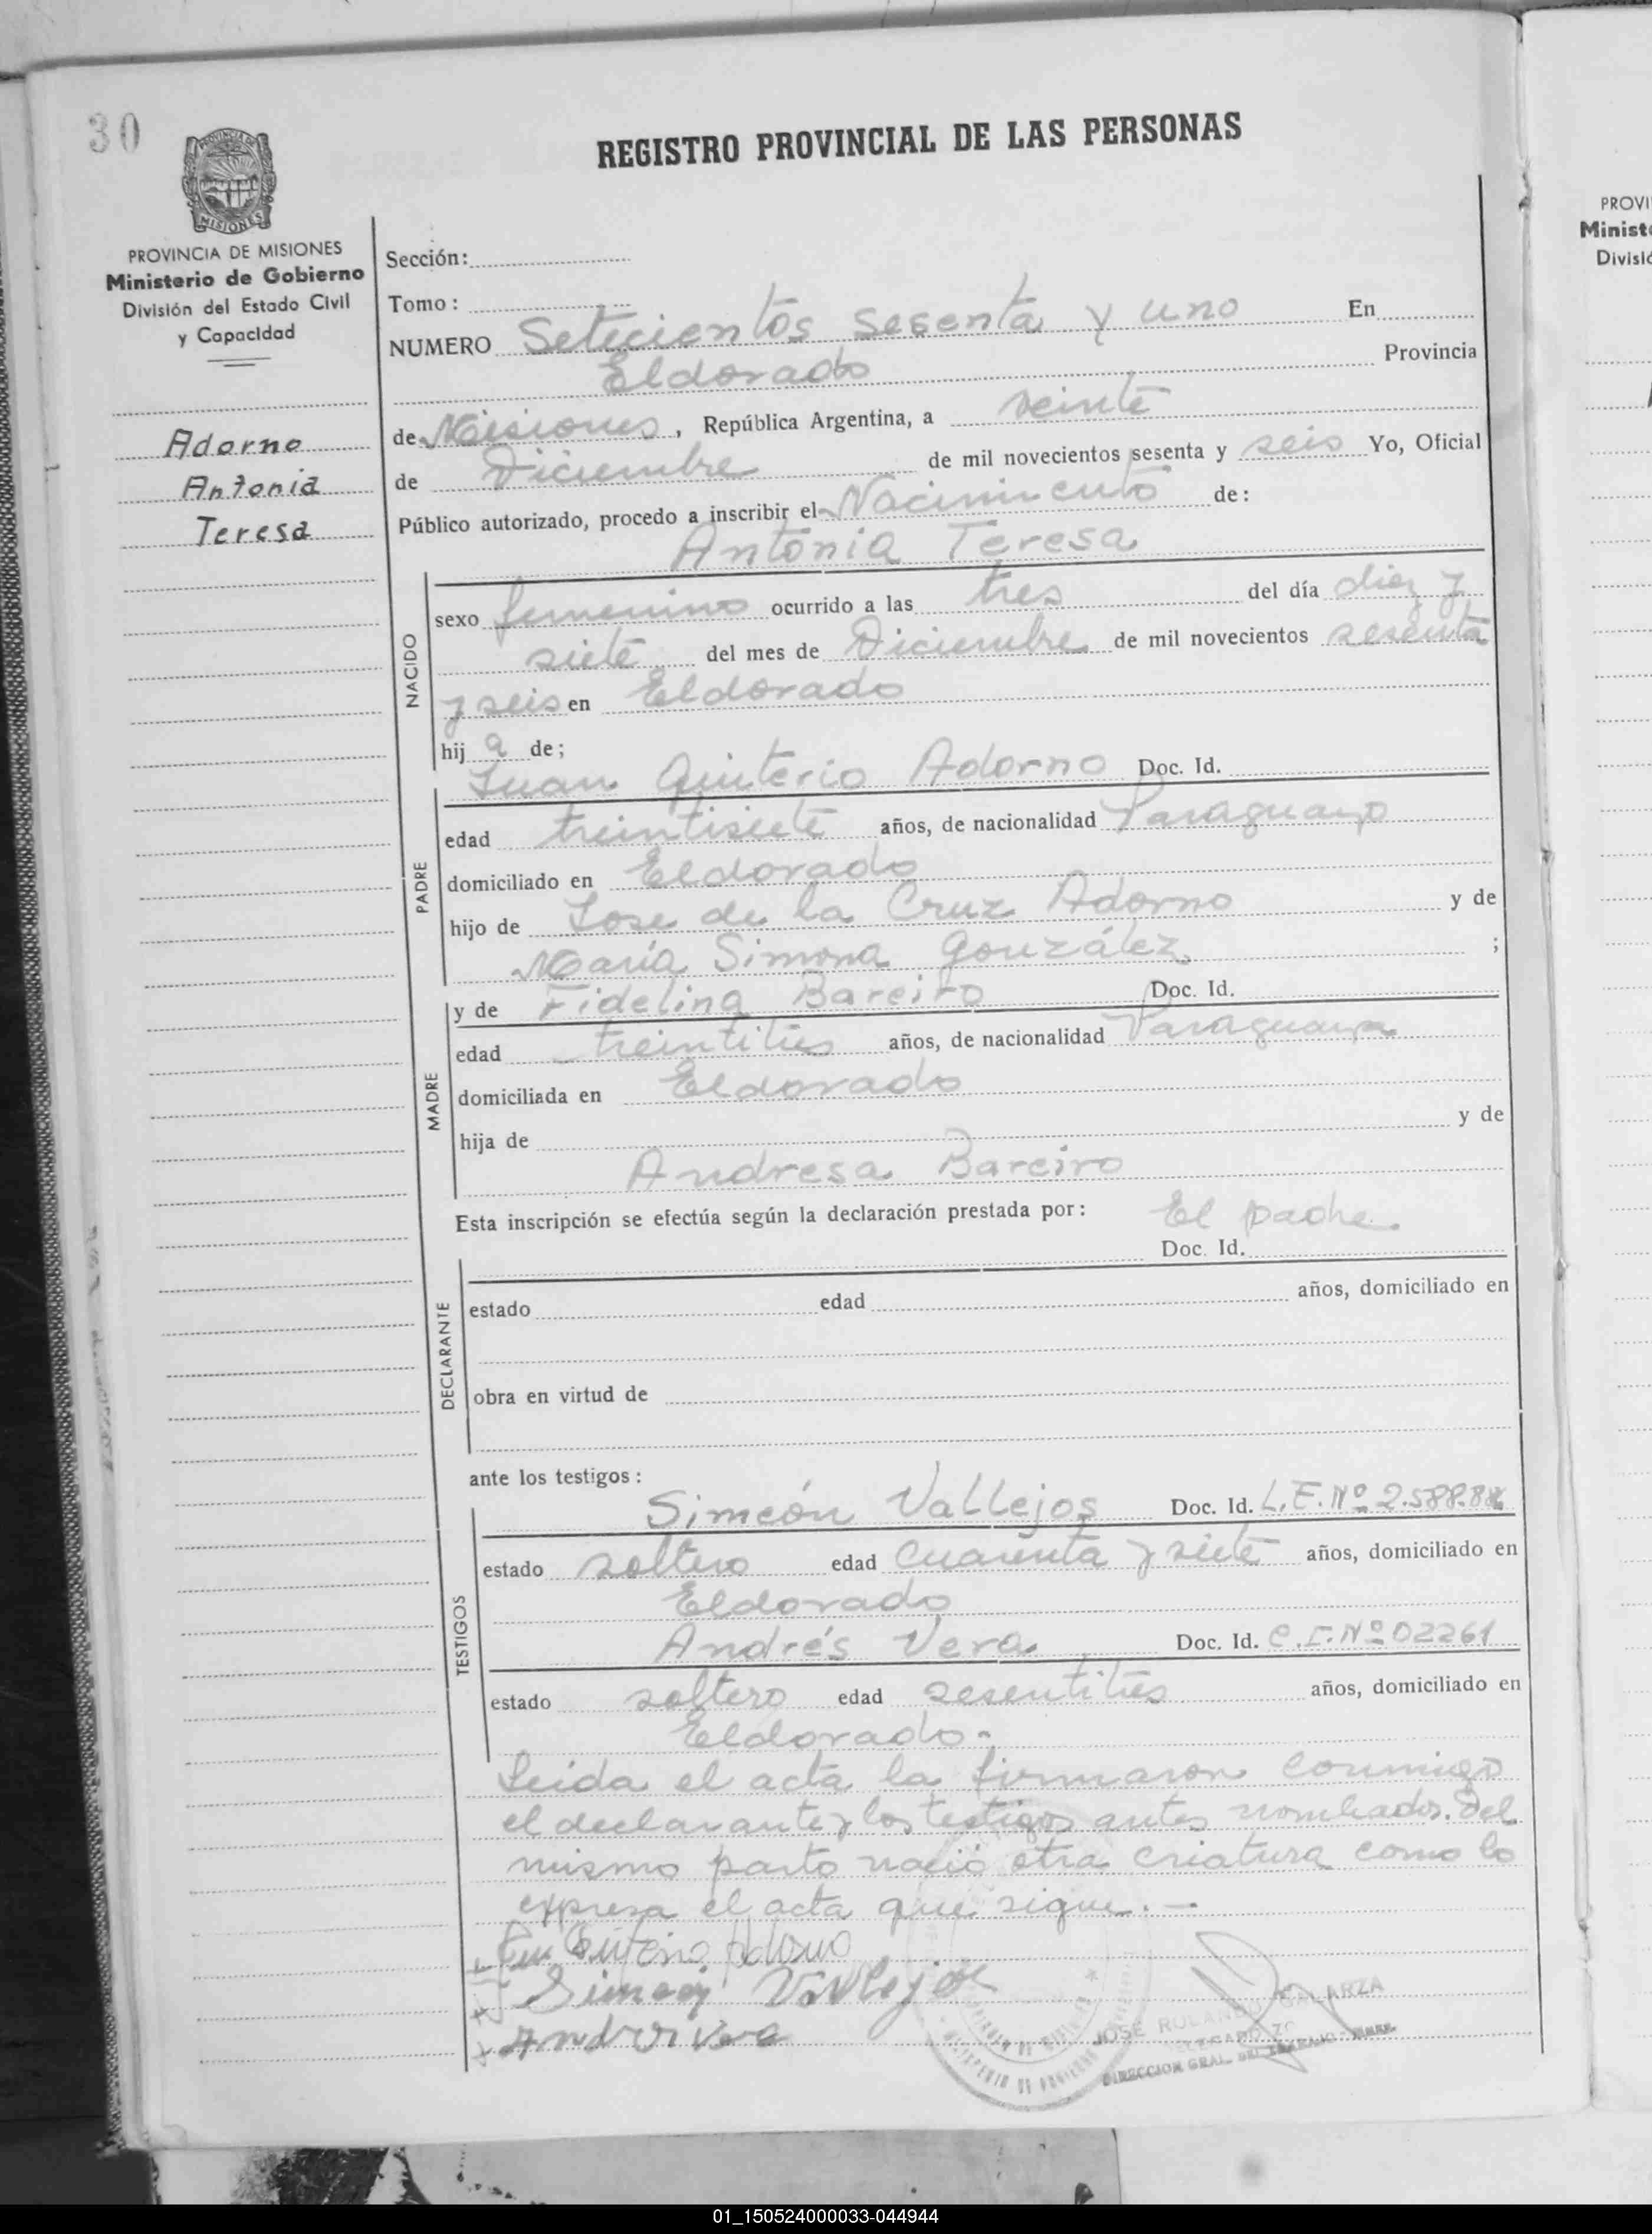 30
REGISTRO PROVINCIAL DE LAS PERSONAS
PROVINCIA DE MISIONES
Ministerio de Gobierno
División del Estado Civil
y Capacidad
Adorno
Antonia
Teresa
Sección:
Tomo:
NUMERO Setecientos sesenta y uno En
Eldorado Provincia
de Misiones, República Argentina, a veinte
de Diciembre de mil novecientos sesenta y seis Yo, Oficial
Público autorizado, procedo a inscribir el Nacimiento de:
Antonia Teresa
NACIDO
sexo femenino ocurrido a las tres del día diez y
siete del mes de Diciembre de mil novecientos sesenta
y seis en Eldorado
hij a de;
PADRE
Juan Quinterio Adorno Doc. Id.
edad treintisiete años, de nacionalidad Paraguayo
domiciliado en Eldorado
hijo de Jose de la Cruz Adorno y de
María Simona González ;
MADRE
y de Fidelina Bareiro Doc. Id.
edad treintitres años, de nacionalidad Paraguaya
domiciliada en Eldorado
hija de y de
Andresa Bareiro
Esta inscripción se efectúa según la declaración prestada por: El padre.
DECLARANTE
Doc. Id.
estado edad años, domiciliado en
obra en virtud de
ante los testigos:
TESTIGOS
Simeón Vallejos Doc. Id. L.E. Nº
estado soltero edad cuarenta y siete años, domiciliado en
Eldorado
Andrés Vera Doc. Id. C.I. Nº 02261
estado soltero edad sesentitres años, domiciliado en
Eldorado.-
Leida el acta la firmaron conmigo
el declarante y los testigos antes nombrados. Del
mismo parto nació otra criatura como lo
expresa el acta que sigue. -
Adorno
Simeon Vallejos
Vera
JOSE ROLANDO GALARZA
DIRECCION GRAL. DEL TRABAJO
PROVI
Ministe
Divisió
01_150524000033-044944